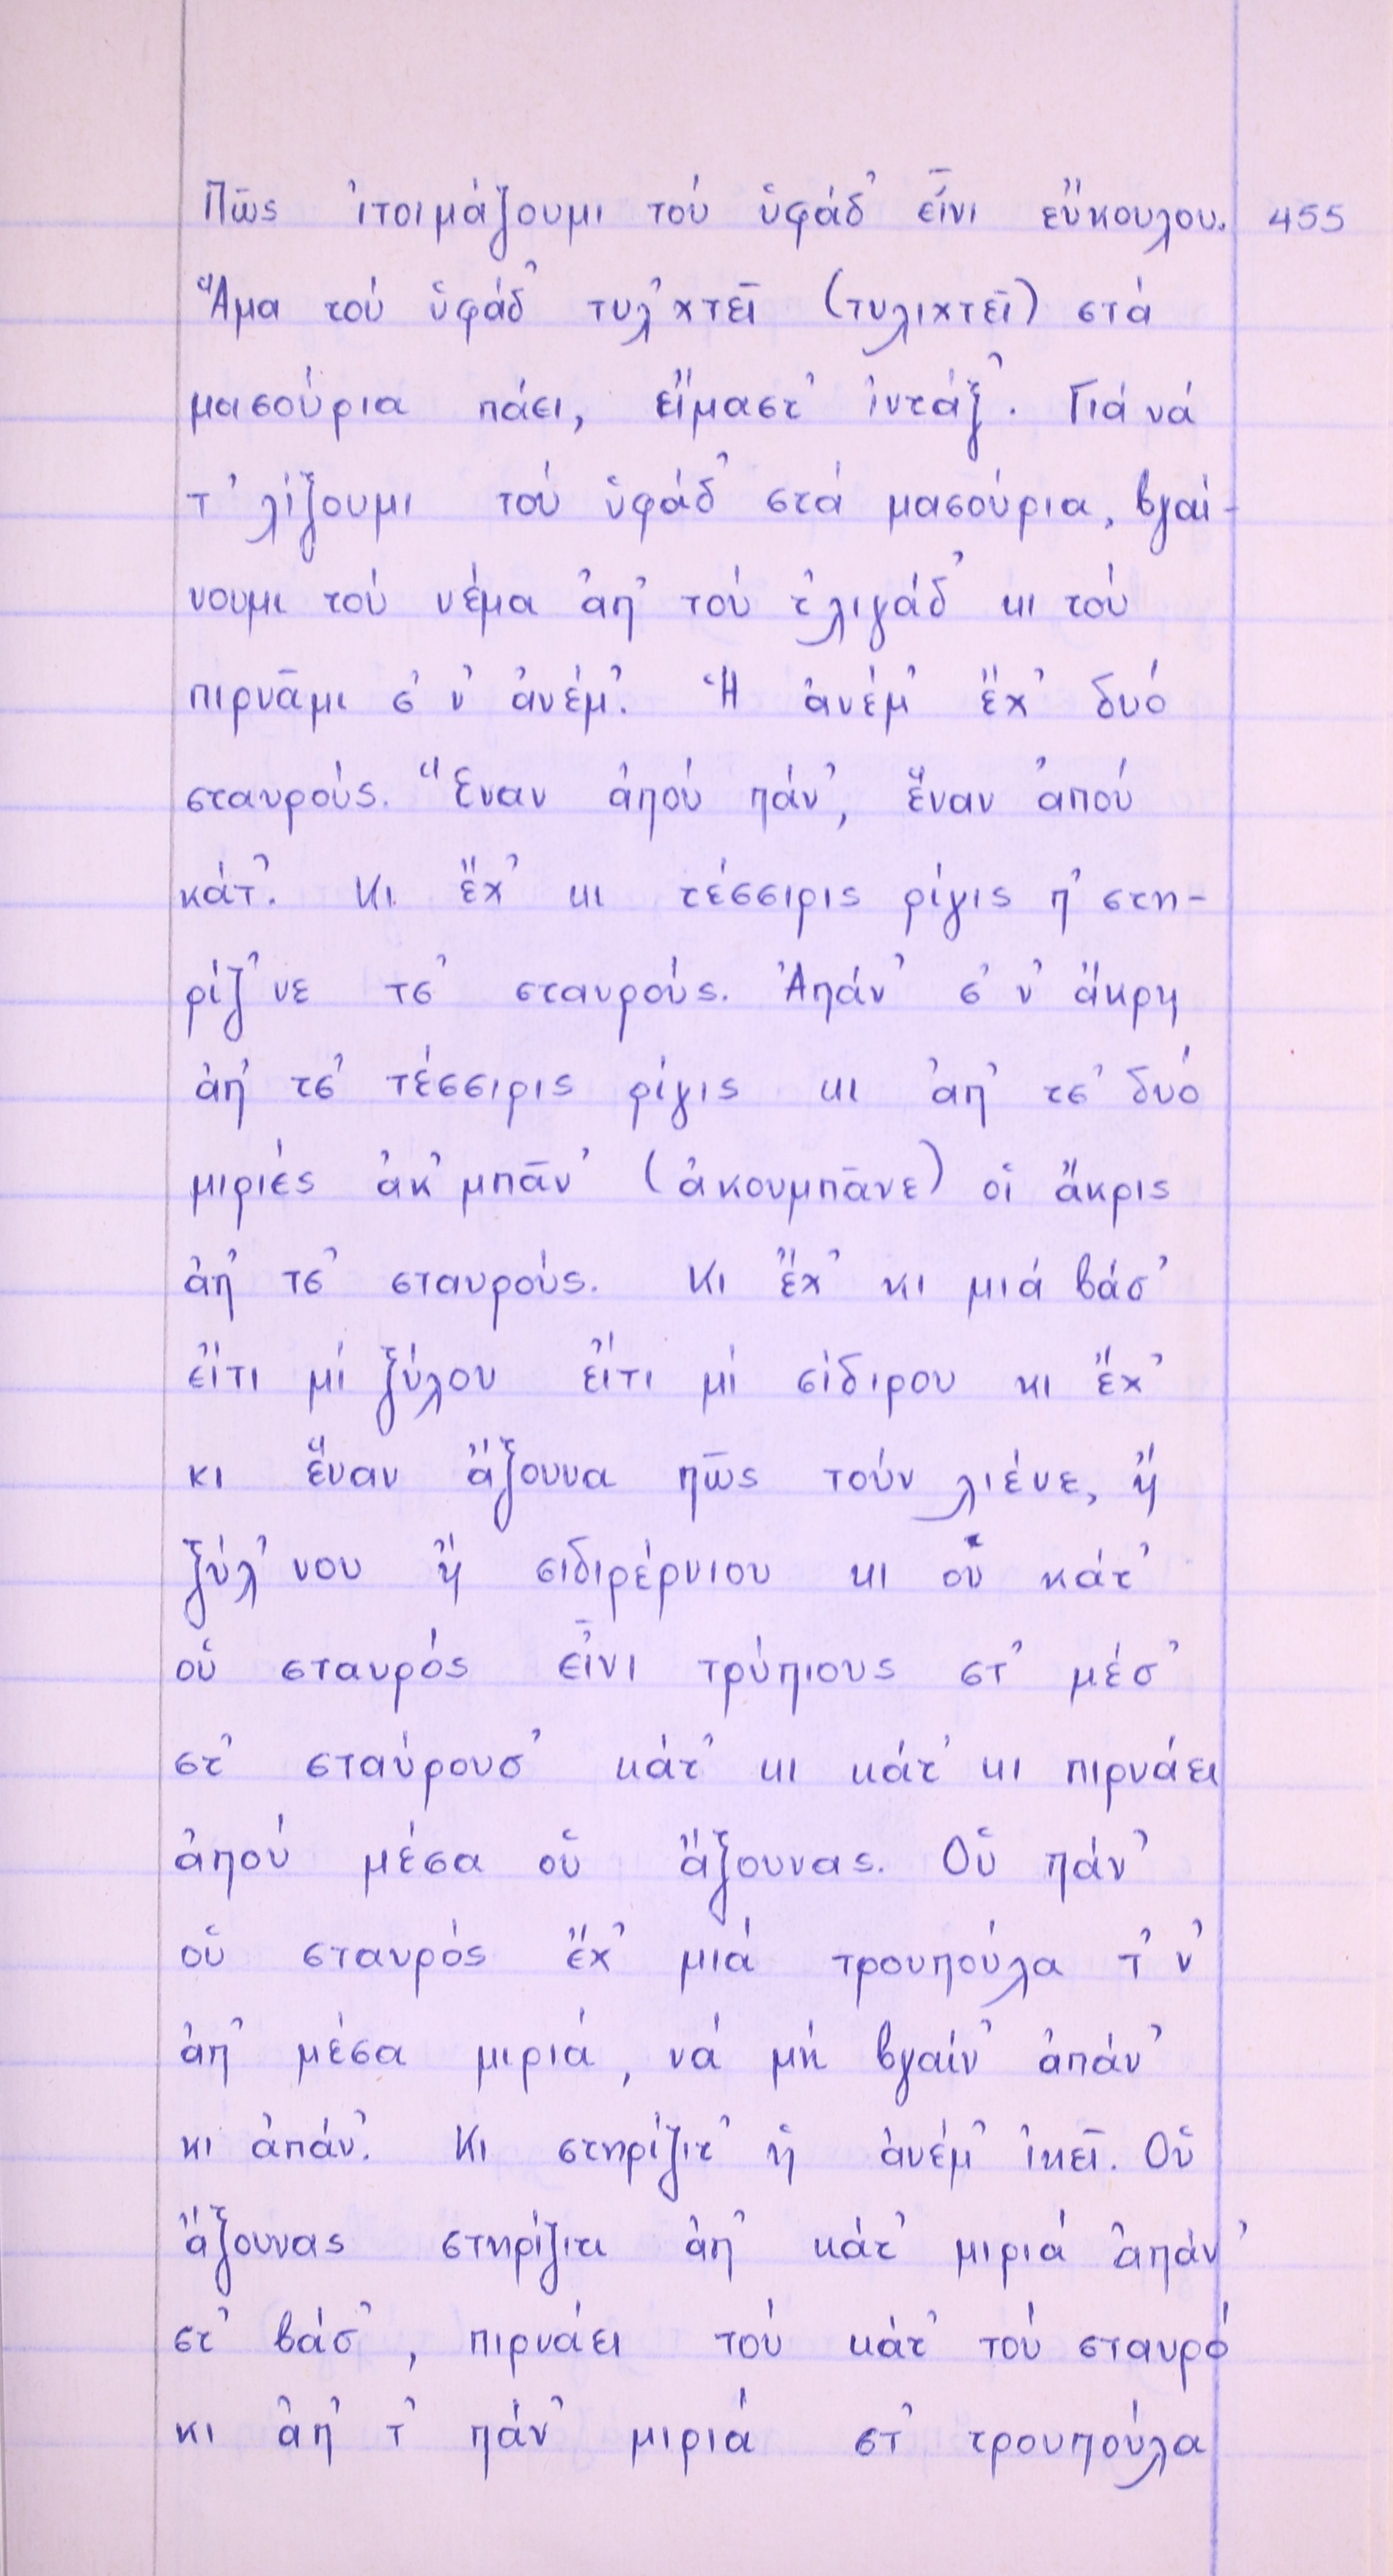 Πῶς ἰτοιμάζουμι τού ὑφάδ᾽ εἶνι εὔκουλου. 455
Ἅμα τού ὑφάδ᾽ τυλ᾽χτεῖ (τυλιχτεῖ) στά
μασούρια πάει, εἴμαστ᾽ ἰντάξ᾽. Γιά νά
τ᾽λίξουμι τού ὑφάδ᾽ στά μασούρια, βγαί-
νουμι τού νέμα ἀπ᾽ τού τ᾽λιγάδ᾽ κι τού
πιρνᾶμι σ᾽ ν᾽ ἀνέμ᾽. Ἡ ἀνέμ᾽ ἔχ᾽ δυό
σταυρούς. Ἕναν ἀπού πάν᾽, ἕναν ἀπού
κάτ᾽. Κι ἔχ᾽ κι τέσσιρις ρίγις π᾽ στη-
ρίζ᾽νε τσ᾽ σταυρούς. Ἀπάν᾽ σ᾽ ν᾽ ἄκρη
ἀπ᾽ τσ᾽ τέσσιρις ρίγις κι ἀπ᾽ τσ᾽ δυό
μιριές ἀκ᾽μπᾶν᾽ (ἀκουμπᾶνε) οἱ ἄκρις
ἀπ᾽ τσ᾽ σταυρούς. Κι ἔχ᾽ κι μιά βάσ᾽
εἴτι μί ξύλου εἴτι μί σίδιρου κι ἔχ᾽
κι ἕναν ἄξουνα πῶς τούν λιένε, ἤ
ξύλ᾽νου ἤ σιδιρέρνιου κι οὑ κάτ᾽
οὑ σταυρός εἶνι τρύπιους στ᾽ μέσ᾽
στ᾽ σταύρουσ᾽ κάτ᾽ κι κάτ᾽ κι πιρνάει
ἀπού μέσα οὑ ἄξουνας. Οὑ πάν᾽
οὑ σταυρός ἔχ᾽ μιά τρουπούλα τ᾽ ν᾽
ἀπ᾽ μέσα μιριά, νά μή βγαίν᾽ ἀπάν᾽
κι ἀπάν᾽. Κι στηρίζιτ᾽ ἡ ἀνέμ᾽ ἰκεῖ. Οὑ
ἄξουνας στηρίζιτι ἀπ᾽ κάτ᾽ μιριά ἀπάν᾽
στ᾽ βάσ᾽, πιρνάει τού κάτ᾽ τού σταυρό
κι ἀπ᾽ τ᾽ πάν᾽ μιριά στ᾽ τρουπούλα